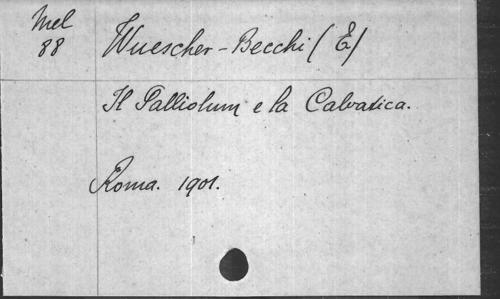 Mel
88
Wuescher-Becchi (E)
Il Palliolum e la Calvatica.
Roma. 1901.